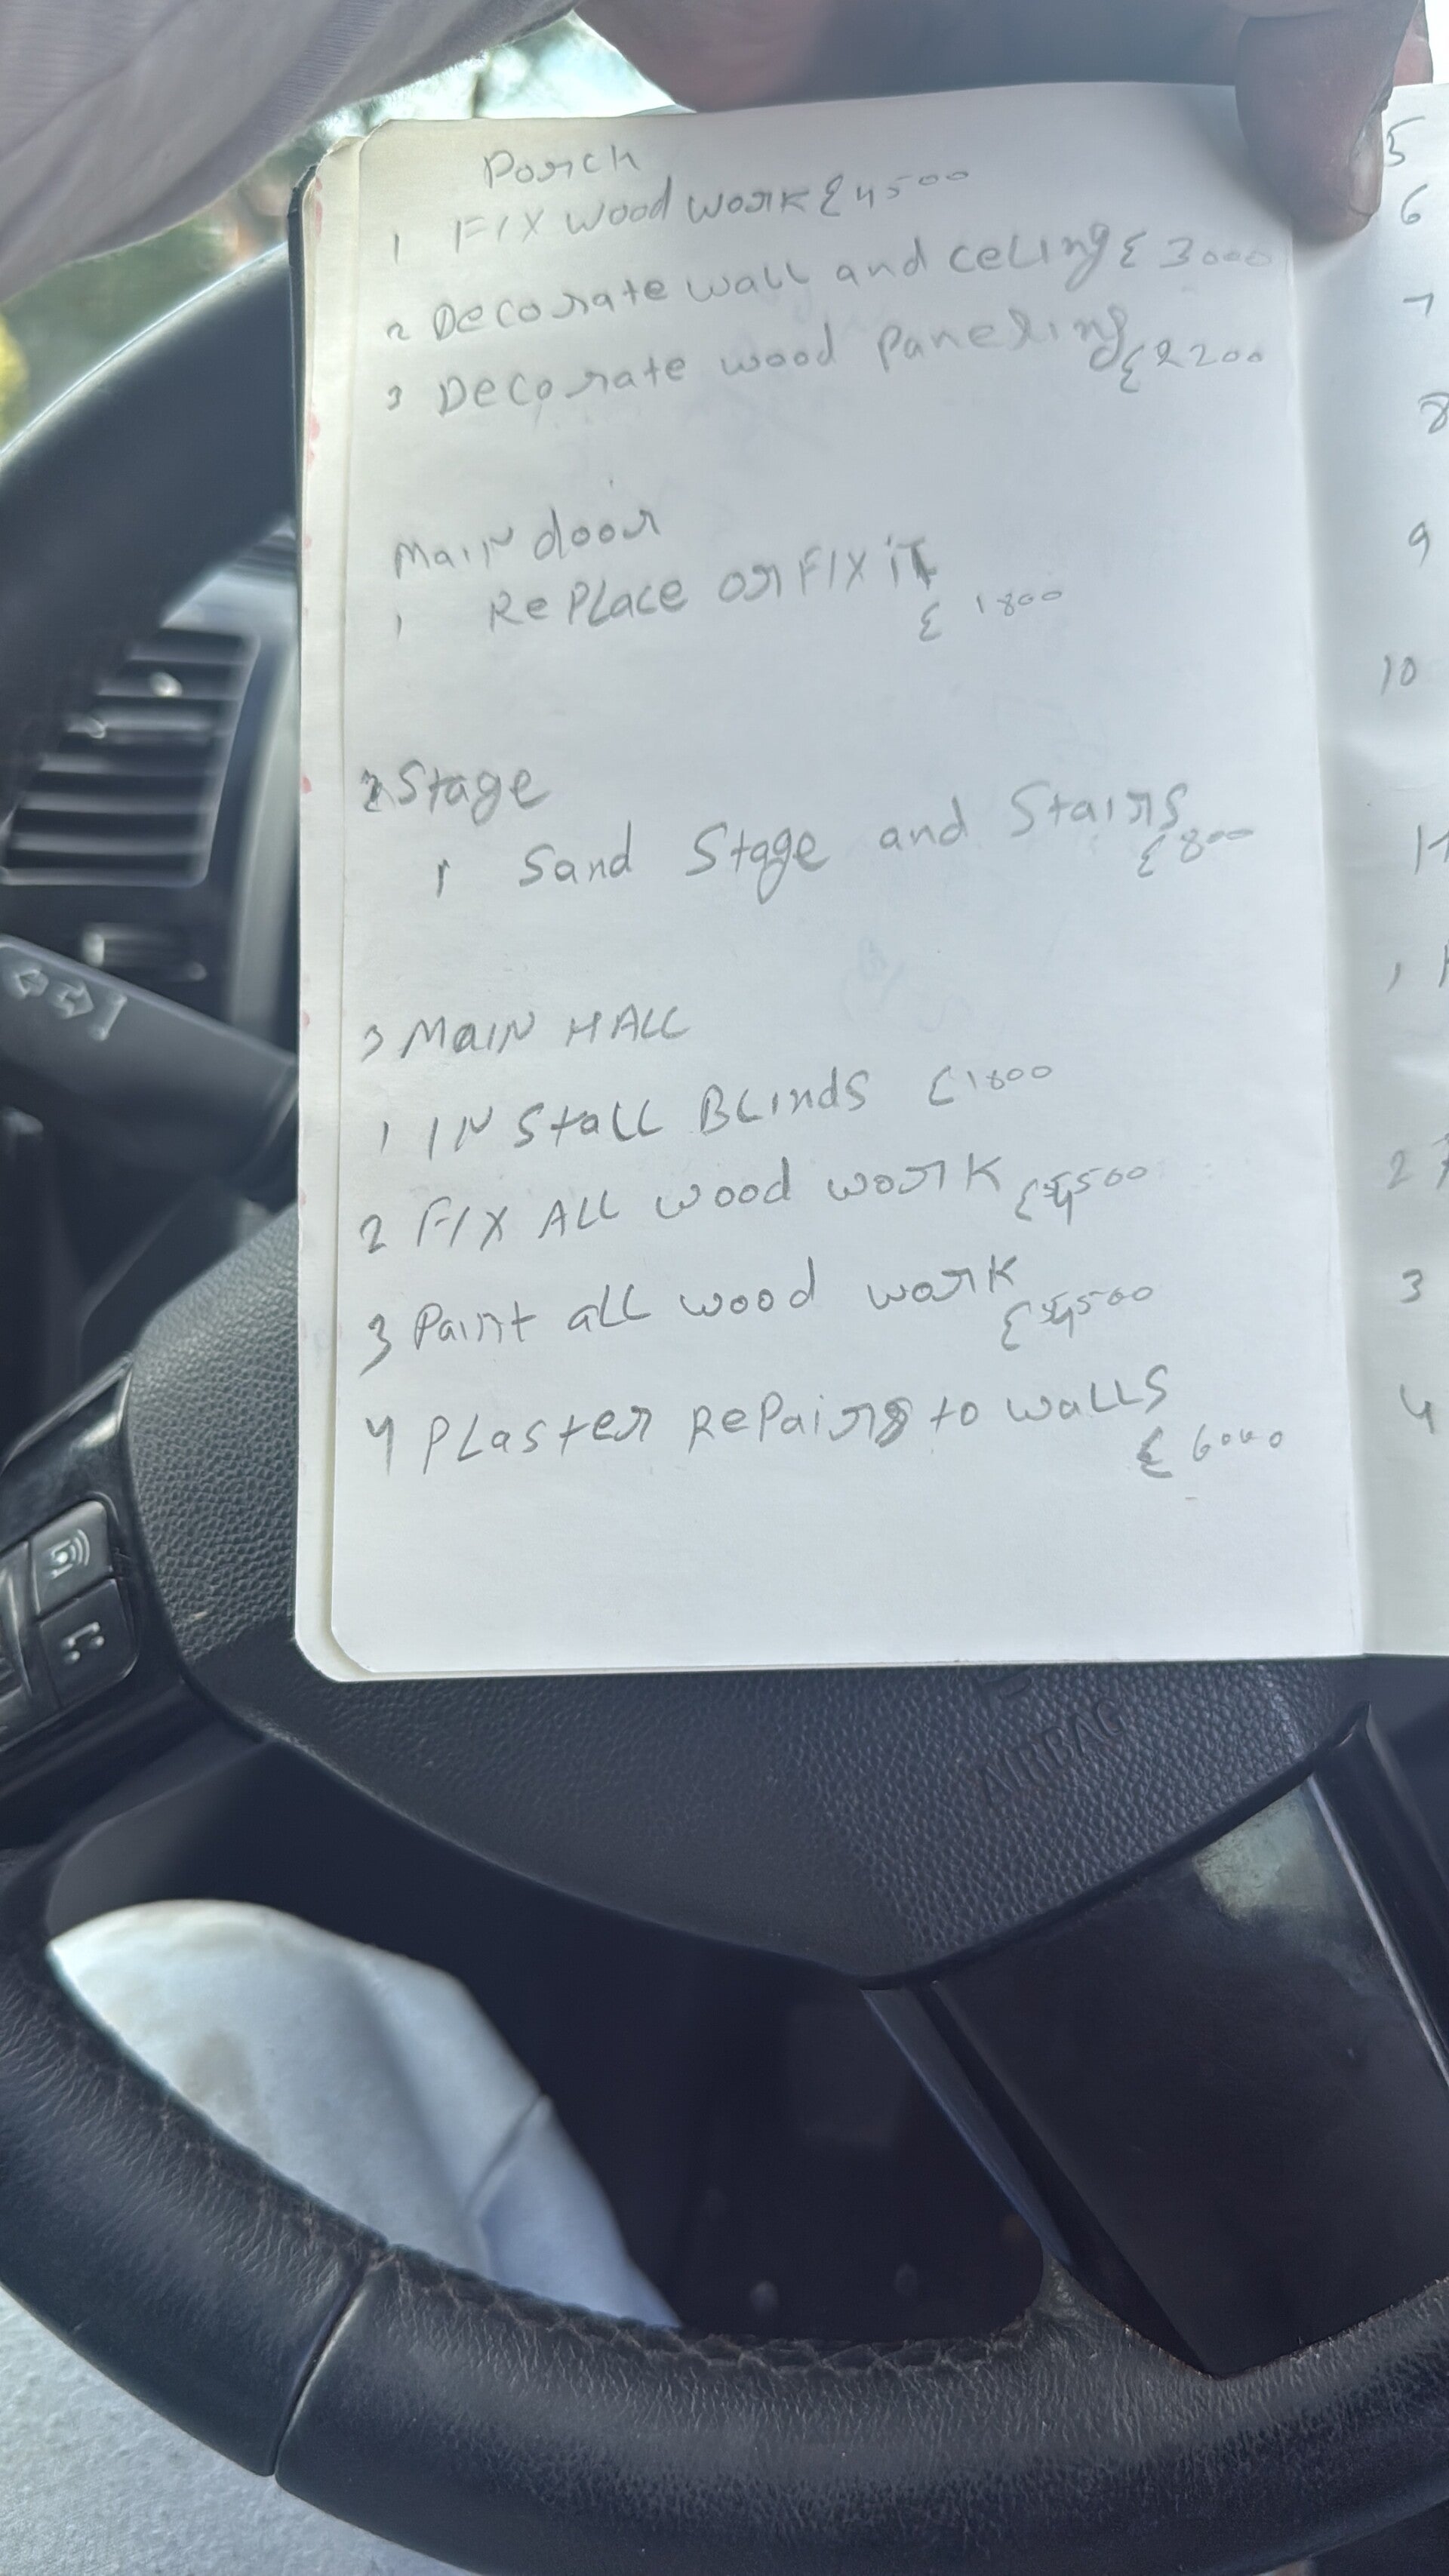 Porch
1 FIX wood work £4500
2 Decorate wall and celing £3000
3 Decorate wood paneling
£2200
Main door
1 RePLace or FIX it
£ 1800
2 Stage
1 Sand Stage and Stairs
£800
3 MaIN HALL
1 INStaLL BLinds £1800
2 FIX ALL wood work
3 Paint aLL wood work
4 PLaster RePairs to waLLS
£6000
5
6
7
8
9
10
1
2
3
4
AIRBAG